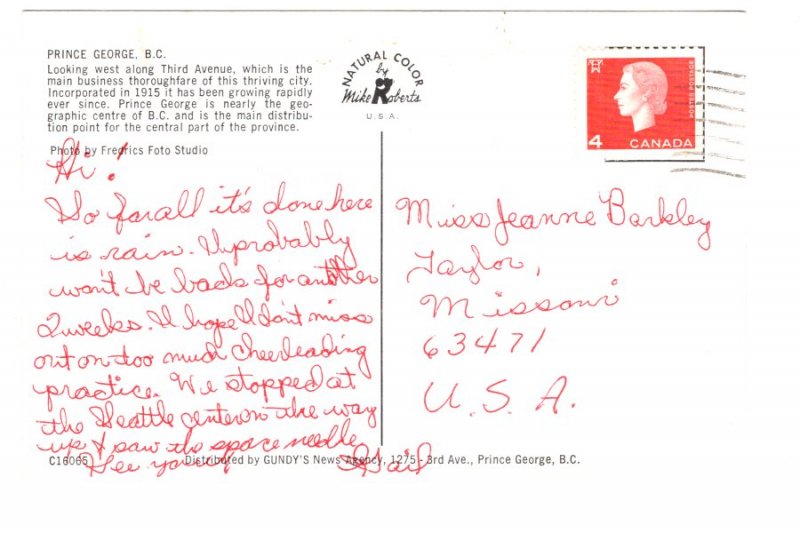 PRINCE GEORGE, B.C.
Looking west along Third Avenue, which is the
main business thoroughfare of this thriving city.
Incorporated in 1915 it has been growing rapidly
ever since. Prince George is nearly the geo-
graphic centre of B.C. and is the main distribu-
tion point for the central part of the province.
Photo by Fredrics Foto Studio
NATURAL COLOR
by
Mike Roberts
U.S.A.
POSTES POSTAGE
4
CANADA
Hi!
So far all it's done here
is rain. I'll probably
won't be back for another
2 weeks. I hope I don't miss
out on too much cheerleading
practice. We stopped at
the Seattle center on the way
up & saw the space needle
See you
Gail
Miss Jeanne Barkley
Taylor,
Missouri
63471
U.S.A.
C16065
Distributed by GUNDY'S News Agency, 1275 - 3rd Ave., Prince George, B.C.